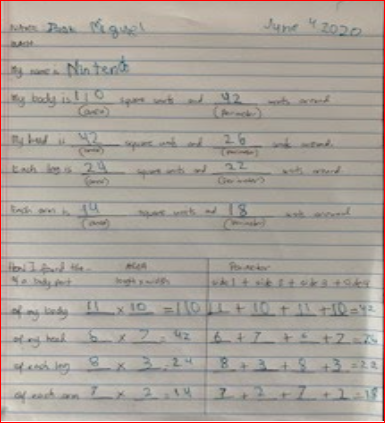 Name: Josh Miguel June 4 2020
My name is Nintendo
My body is 110 square units and 42 units around
(area) (perimeter)
My head is 42 square units and 26 units around.
(area) (perimeter)
Each leg is 24 square units and 22 units around
(area) (perimeter)
Each arm is 14 square units and 18 units around
(area) (perimeter)
How I found the Area Perimeter
of a body part length x width side 1 + side 2 + side 3 + side 4
of my body 11 x 10 = 110 11 + 10 + 11 + 10 = 42
of my head 6 x 7 = 42 6 + 7 + 6 + 7 = 26
of each leg 8 x 3 = 24 8 + 3 + 8 + 3 = 22
of each arm 7 x 2 = 14 7 + 2 + 7 + 2 = 18